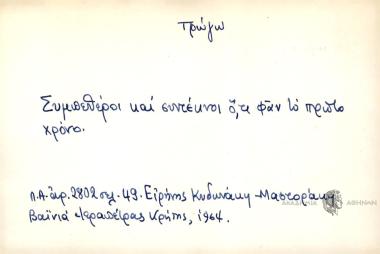 τρώγω
Συμπεθέροι καί συντέκνοι ὅ,τι φᾶν τό πρῶτο
χρόνο.
Λ.Α. ἀρ. 2802 σελ. 49. Εἰρήνης Κυδωνάκη-Μαστοράκη
Βαϊνιά Ἱεραπέτρας Κρήτης, 1964.
ΑΚΑΔΗΜΙΑ ΑΘΗΝΩΝ